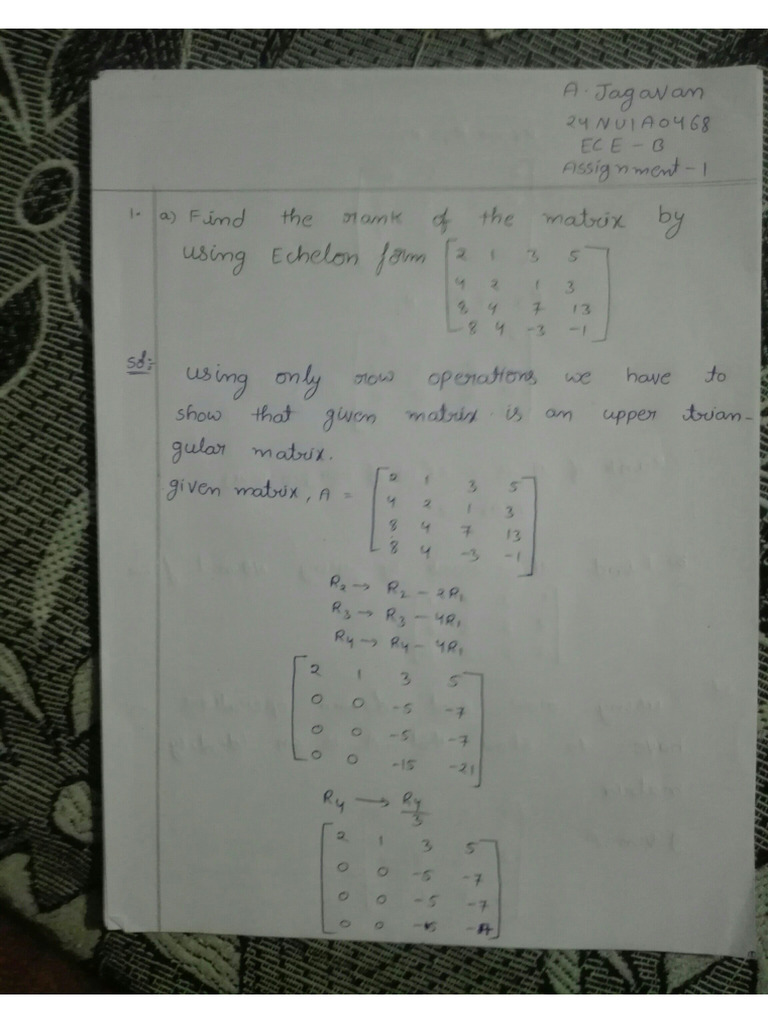 A. Jagavan
24NU1A0468
ECE - B
Assignment - 1
1. a) Find the rank of the matrix by
using Echelon form [2 1 3 5
4 2 1 3
8 4 7 13
8 4 -3 -1]
Sol:- using only row operations we have to
show that given matrix is an upper trian-
gular matrix.
given matrix, A = [2 1 3 5
4 2 1 3
8 4 7 13
8 4 -3 -1]
R2 → R2 - 2R1
R3 → R3 - 4R1
R4 → R4 - 4R1
[2 1 3 5
0 0 -5 -7
0 0 -5 -7
0 0 -15 -21]
R4 → R4/3
[2 1 3 5
0 0 -5 -7
0 0 -5 -7
0 0 -5 -7]